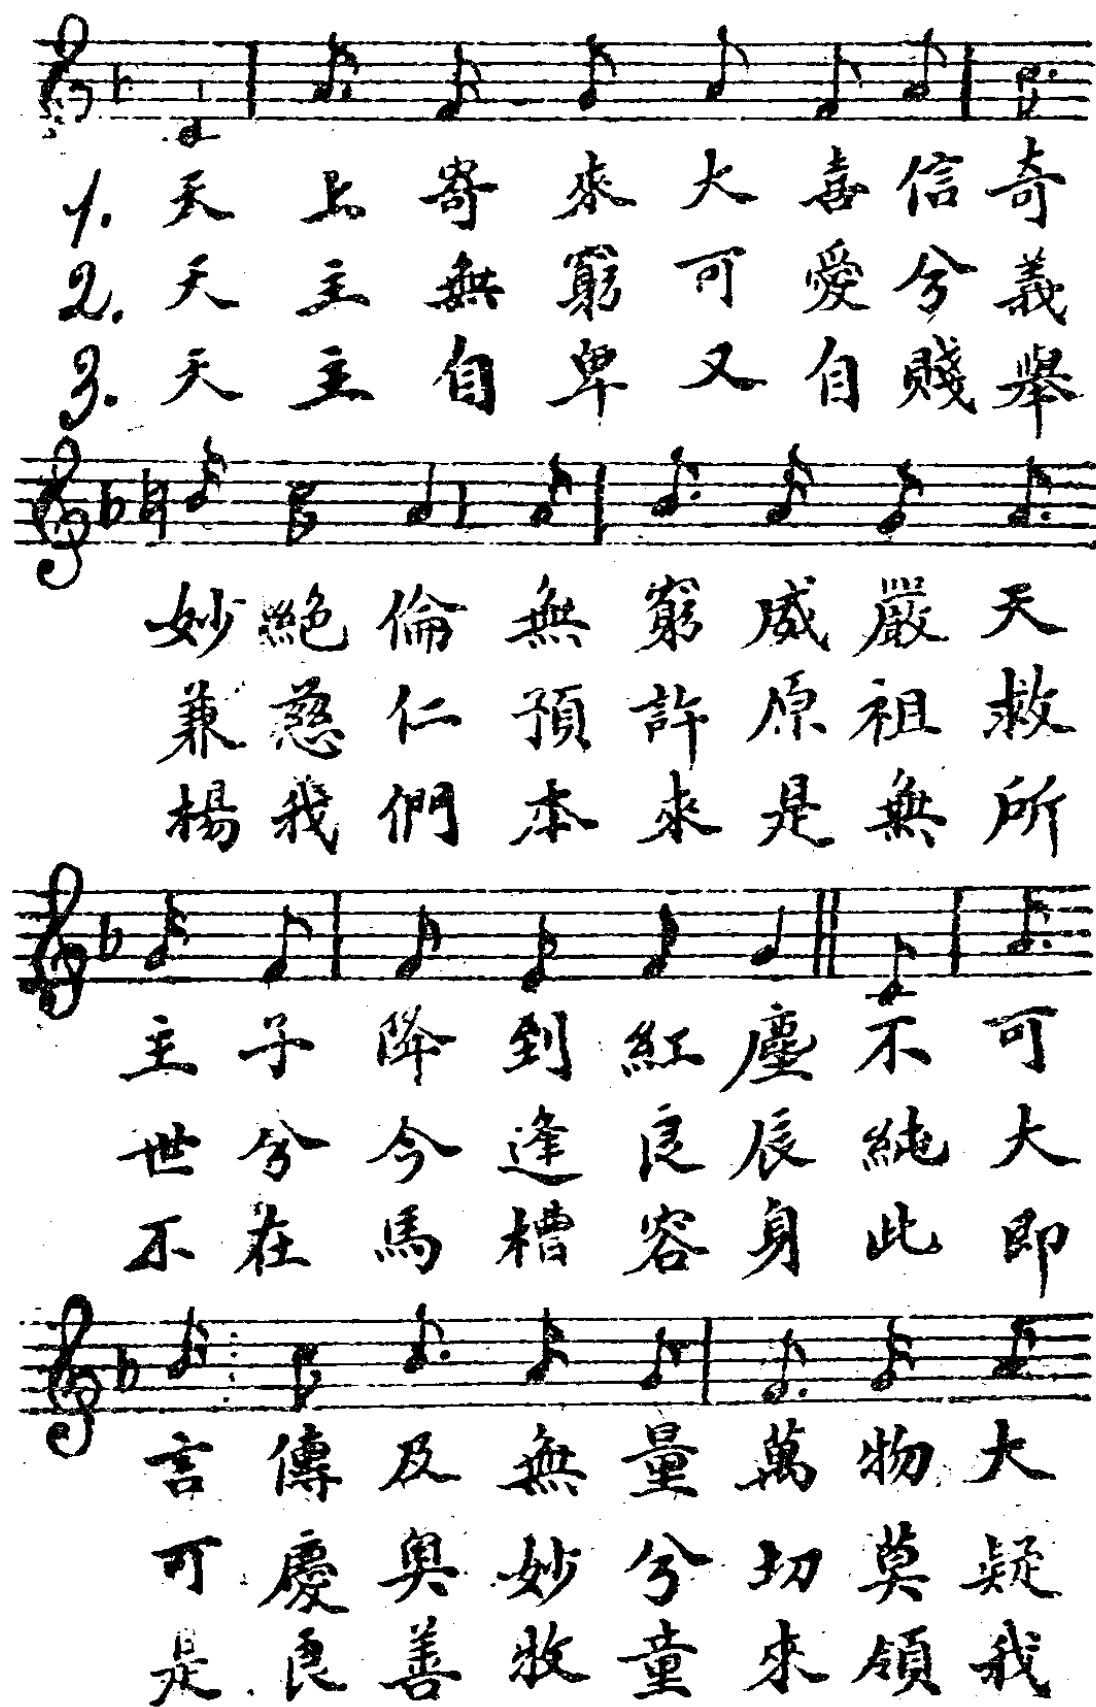 1. 天上寄來大喜信奇
2. 天主無窮可愛兮義
3. 天主自卑又自賤舉
妙絕倫無窮威嚴天
兼慈仁預許原祖救
楊我們本來是無所
主子降到紅塵不可
世兮今逢良辰純大
不在馬槽容身此即
言傳及無量萬物大
可慶奧妙兮切莫疑
是良善牧童來領我